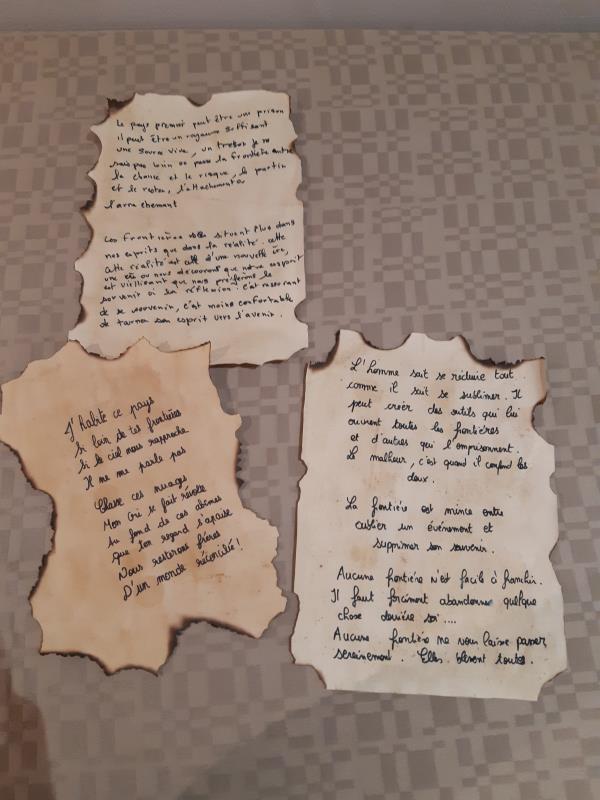 Le pays premier peut être une prison
il peut être un royaume suffisant
une source vive, un tresor je ne
sais pas bien ou passe la frontière entre
la chance et le risque, le partir
et le rester, l'attachement
l'arra chement
Les frontières se situent plus dans
nos esprits que dans la réalité. cette
cette réalité est celle d'une nouvelle ère,
une ère ou nous découvrons que notre esprit
est vieillissant que nous préférons le
souvenir à la réflexion. C'est rassurant
de se souvenir, c'est moins confortable
de tourner son esprit vers l'avenir.
J'habite ce pays
Si loin de tes frontières
Si le ciel nous rapproche
Il ne me parle pas
Chasse ces nuages
Mon cri se fait révolte
Au fond de ces abimes
que ton regard s'apaise
Nous resterons frères
D'un monde réconcilié!
L'homme sait se réduire tout
comme il sait se sublimer. Il
peut créer des outils qui lui
ouvrent toutes les frontières
et d'autres qui l'emprisonnent.
Le malheur, c'est quand il confond les
deux.
La frontière est mince entre
oublier un événement et
supprimer son souvenir.
Aucune frontière n'est facile à franchir.
Il faut forcément abandonner quelque
chose derrière soi....
Aucune frontière ne vous laisse passer
sereinement. Elles blessent toutes.